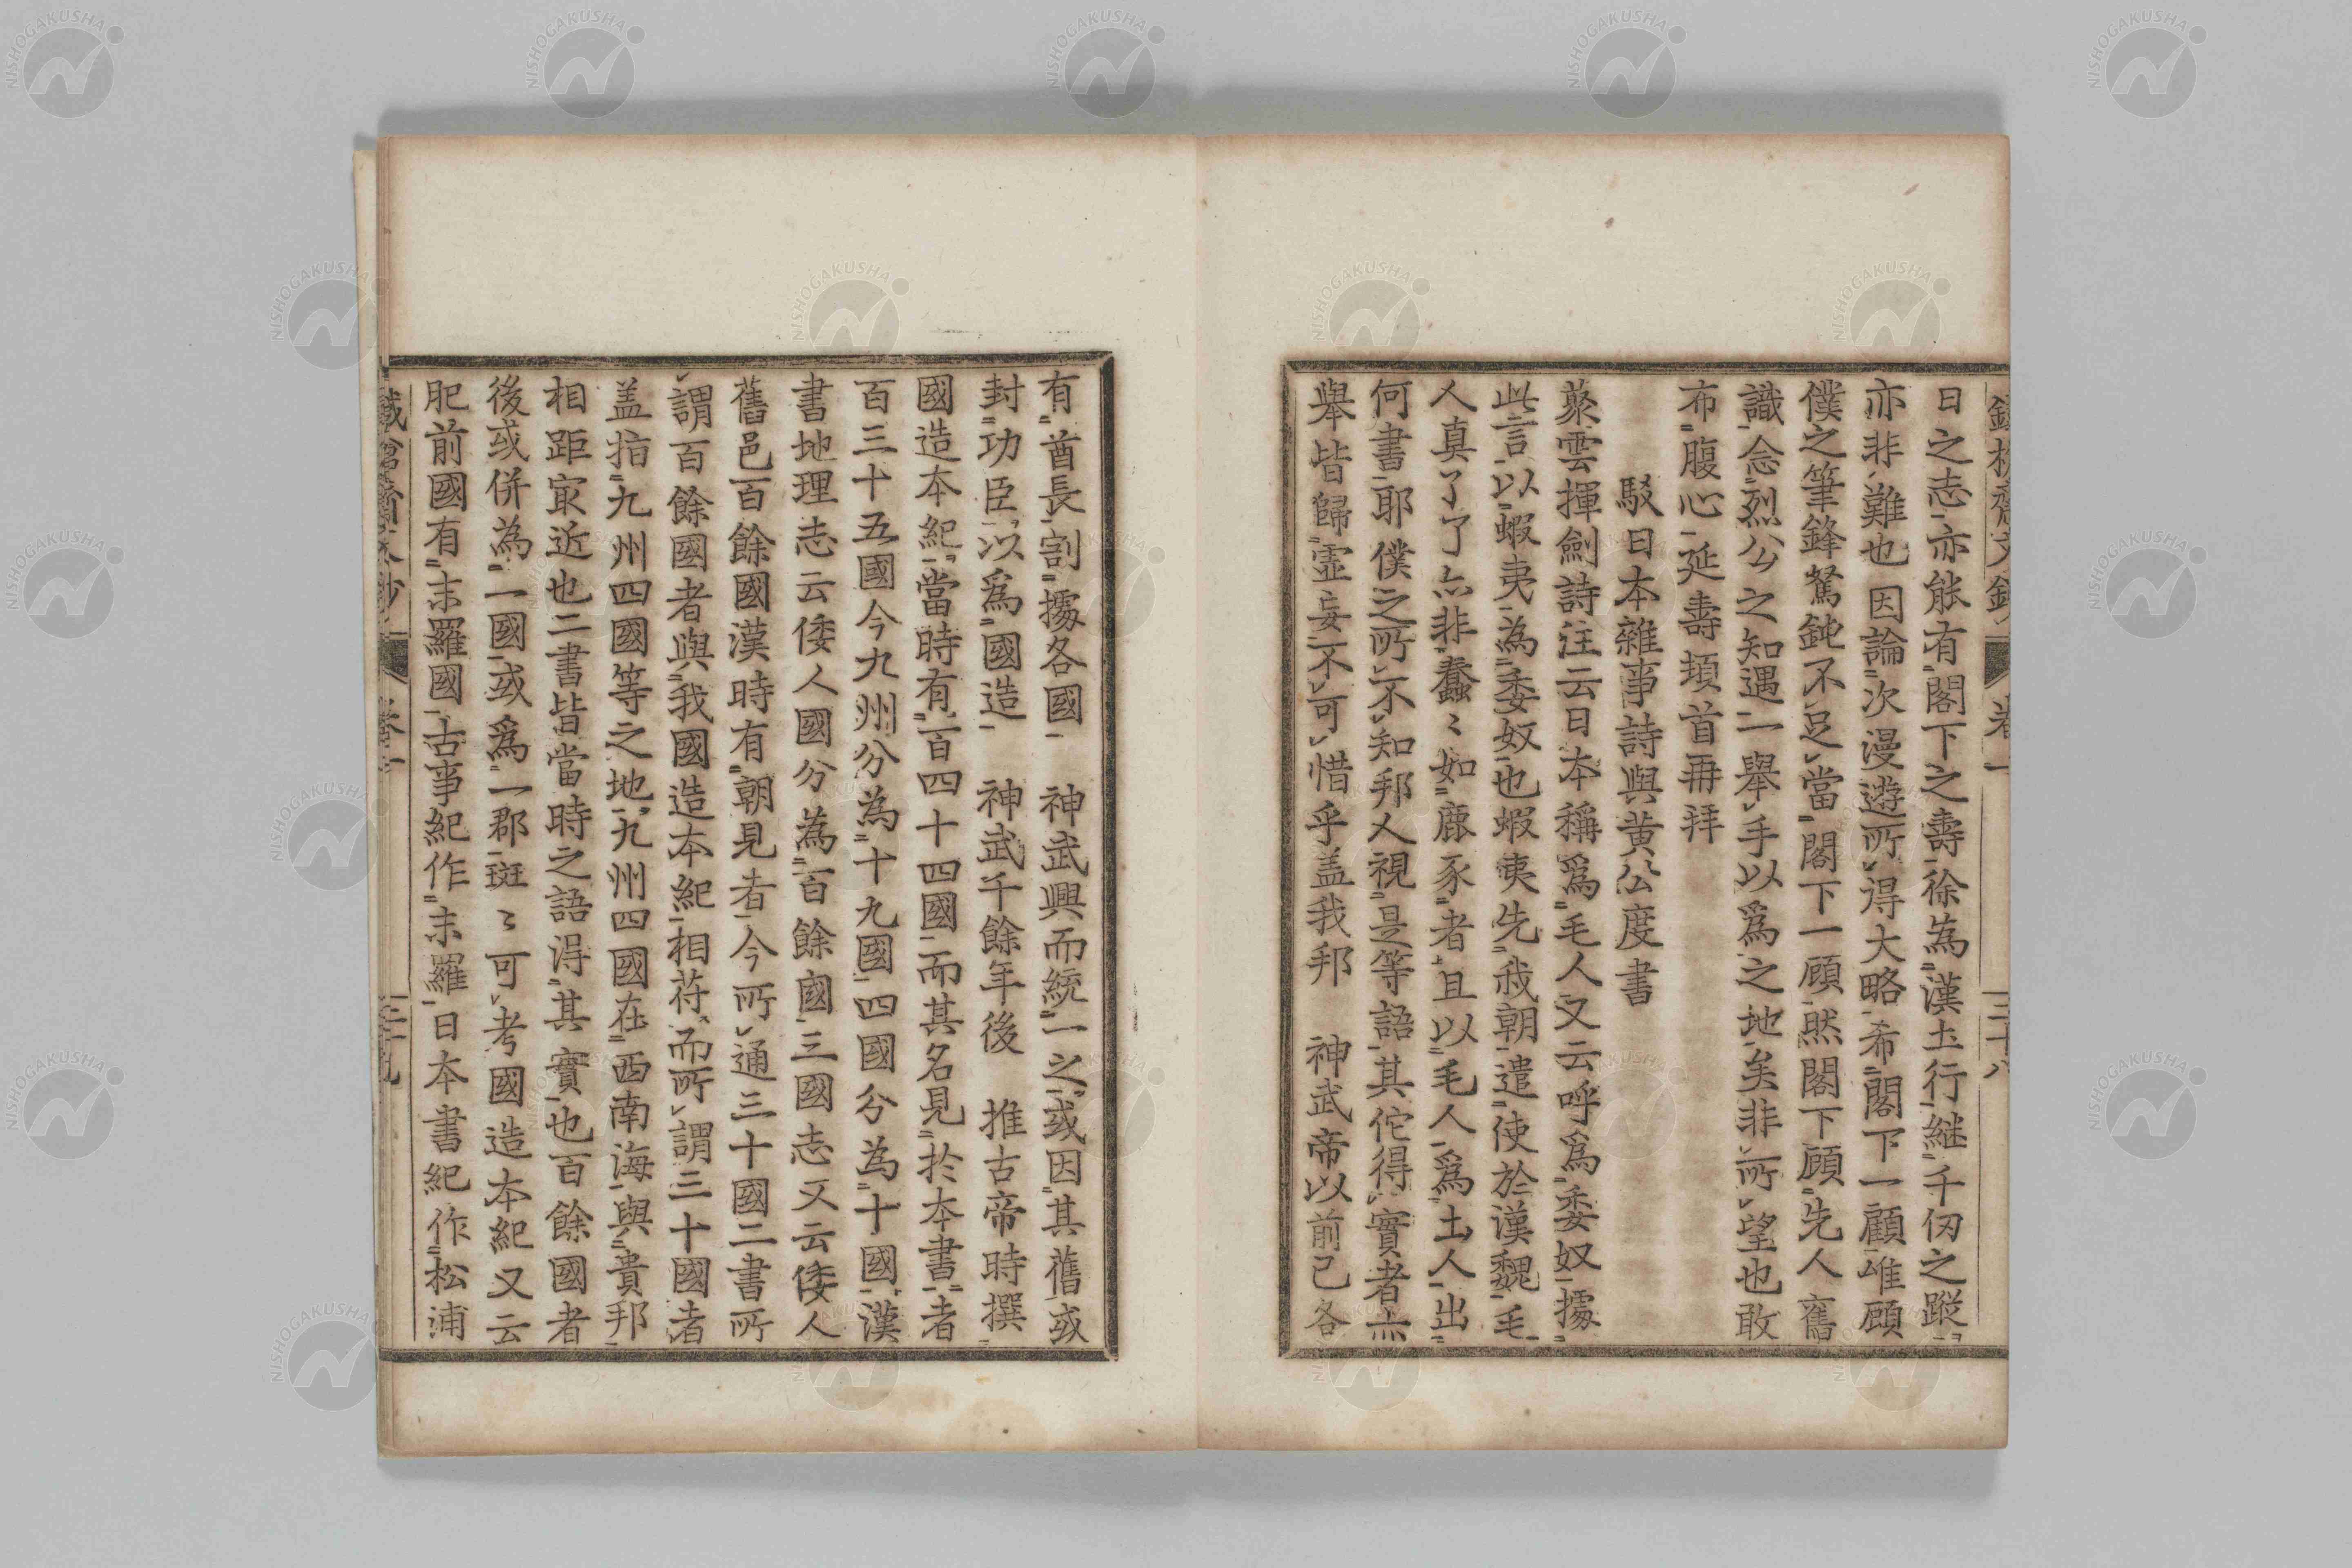 日之志亦能有閣下之壽徐為漢土行継千仭之蹤
亦非難也因論次漫遊所得大略希閣下一顧唯顧
僕之筆鋒駑鈍不足當閣下一顧然閣下顧先人舊
識念烈公之知遇一舉手以爲之地矣非所望也敢
布腹心延壽頓首再拜
駁日本雜事詩與黄公度書
蒸雲揮劍詩注云日本稱爲毛人又云呼爲委奴據
此言以蝦夷為委奴也蝦夷先我朝遣使於漢魏毛
人真了了亦非蠢〻如鹿豕者且以毛人爲土人出
何書耶僕之所不知邦人視是等語其佗得實者亦
舉皆歸虛妄不可惜乎盖我邦 神武帝以前已各
有酋長割據各國 神武興而統一之或因其舊或
封功臣以爲國造 神武千餘年後 推古帝時撰
國造本紀當時有一百四十四國而其名見於本書者
百三十五國今九州分為十九國四國分為十國漢
書地理志云倭人國分為百餘國三國志又云倭人
舊邑百餘國漢時有朝見者今所通三十國二書所
謂百餘國者與我國造本紀相符而所謂三十國者
盖指九州四國等之地九州四國在西南海與貴邦
相距㝡近也二書皆當時之語得其實也百餘國者
後或併為一國或爲一郡斑〻可考國造本紀又云
肥前國有末羅國古事紀作末羅日本書紀作松浦
卷一
三十八
NISHOGAKUSHA